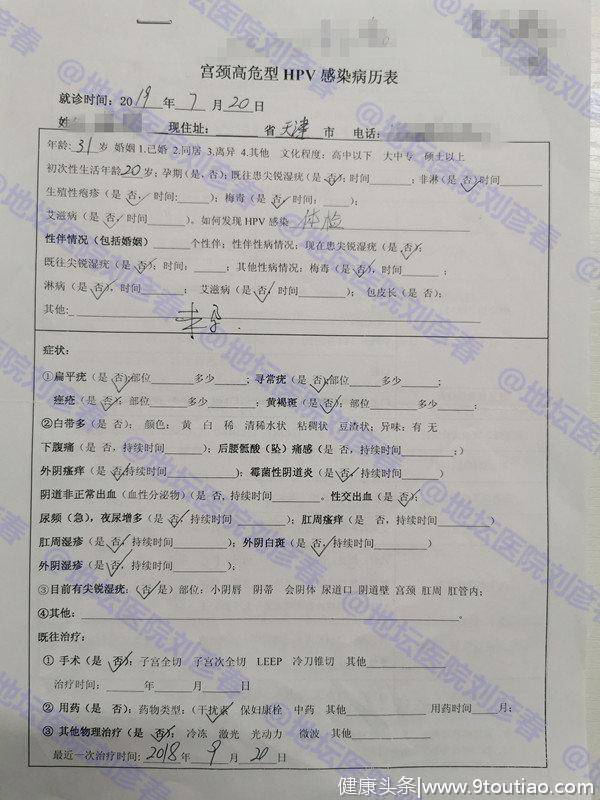 宫颈高危型 HPV 感染病历表
就诊时间：2019 年 7 月 20 日
现住址： 省 天津 市 电话：
年龄：31 岁 婚姻 1.已婚 2.同居 3.离异 4.其他 文化程度：高中以下 大中专 硕士以上
初次性生活年龄 20 岁；孕期（是，否）；既往患尖锐湿疣（是 否）；时间 ；非淋（是 否）时间
生殖性疱疹（是 否，时间： ）；梅毒（是 否，时间： ；
艾滋病（是 否，时间 ）。如何发现 HPV 感染 体检
性伴情况（包括婚姻） 个性伴；性伴性病情况：现在患尖锐湿疣（是 否）；
既往尖锐湿疣（是 否）；时间： ；其他性病情况：梅毒（是 否），时间 ；
淋病（是 否），时间 ； 艾滋病（是 否，时间 ）； 包皮长（是 否）；
其他： 未孕
症状：
①扁平疣（是 否）部位 多少 ；寻常疣（是 否）部位 多少 ；
痤疮（是 否）；部位 多少 ；黄褐斑（是 否）；部位 多少 ；
②白带多（是 否）； 颜色： 黄 白 稀 清稀水状 粘稠状 豆渣状；异味：有 无
下腹痛（是 否，持续时间 ）；后腰骶酸（坠）痛感（是 否，持续时间 ；）
外阴瘙痒（是 否，持续时间 ）；霉菌性阴道炎（是 否，持续时间 ）
阴道非正常出血（血性分泌物）（是 否，持续时间 。性交出血（是 否）；
尿频（急），夜尿增多（是 否，持续时间 ）；肛周瘙痒（是 否，持续时间 ）
肛周湿疹（是 否，持续时间 ）；外阴白斑（是 否，持续时间 ）
外阴湿疹（是 否，持续时间 ）；
③目前有尖锐湿疣：（否 是）部位：小阴唇 阴蒂 会阴体 尿道口 阴道壁 宫颈 肛周 肛管内；
④其他： 。
既往治疗：
① 手术（是 否）：子宫全切 子宫次全切 LEEP 冷刀锥切 其他
治疗时间： 年 月 日
② 用药（是 否）：药物类型：（干扰素 保妇康栓 中药 其他 用药时间 月；
③ 其他物理治疗（是 否）；冷冻 激光 光动力 微波 其他
最近一次治疗时间：2018 年 9 月 20 日
@地坛医院刘彦春
健康头条|www.9toutiao.com